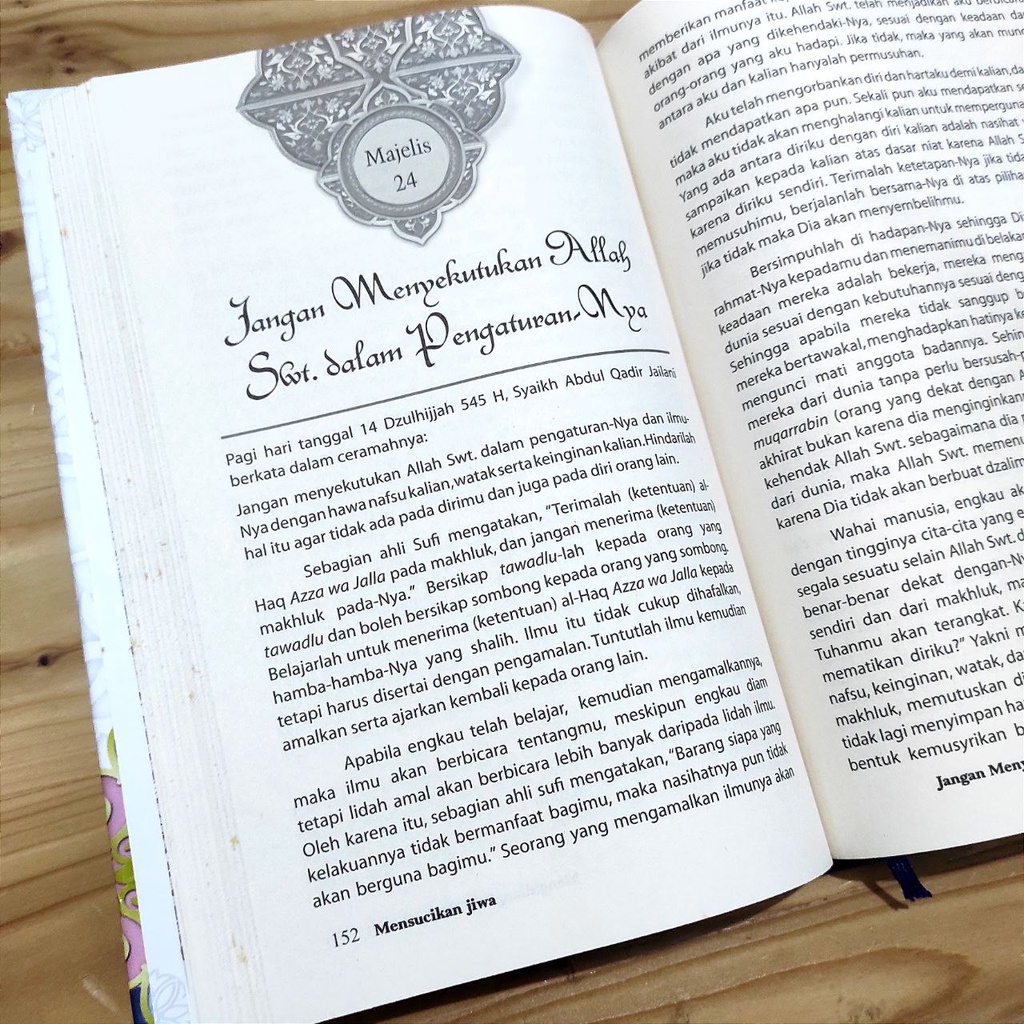 Majelis
24
Jangan Menyekutukan Allah
Swt. dalam Pengaturan-Nya
Pagi hari tanggal 14 Dzulhijjah 545 H, Syaikh Abdul Qadir Jailani
berkata dalam ceramahnya:
Jangan menyekutukan Allah Swt. dalam pengaturan-Nya dan ilmu-
Nya dengan hawa nafsu kalian, watak serta keinginan kalian. Hindarilah
hal itu agar tidak ada pada dirimu dan juga pada diri orang lain.
Sebagian ahli Sufi mengatakan, "Terimalah (ketentuan) al-
Haq Azza wa Jalla pada makhluk, dan jangan menerima (ketentuan)
makhluk pada-Nya." Bersikap tawadlu-lah kepada orang yang
tawadlu dan boleh bersikap sombong kepada orang yang sombong.
Belajarlah untuk menerima (ketentuan) al-Haq Azza wa Jalla kepada
hamba-hamba-Nya yang shalih. Ilmu itu tidak cukup dihafalkan,
tetapi harus disertai dengan pengamalan. Tuntutlah ilmu kemudian
amalkan serta ajarkan kembali kepada orang lain.
Apabila engkau telah belajar, kemudian mengamalkannya,
maka ilmu akan berbicara tentangmu, meskipun engkau diam
tetapi lidah amal akan berbicara lebih banyak daripada lidah ilmu.
Oleh karena itu, sebagian ahli sufi mengatakan, "Barang siapa yang
kelakuannya tidak bermanfaat bagimu, maka nasihatnya pun tidak
akan berguna bagimu." Seorang yang mengamalkan ilmunya akan
152 Mensucikan jiwa
memberikan manfaat
akibat dari ilmunya itu. Allah Swt. telah menjadikan aku
dengan apa yang dikehendaki-Nya, sesuai dengan keadaan
orang-orang yang aku hadapi. Jika tidak, maka yang akan
antara aku dan kalian hanyalah permusuhan.
Aku telah mengorbankan diri dan hartaku demi kalian,
tidak mendapatkan apa pun. Sekali pun aku mendapatkan
maka aku tidak akan menghalangi kalian untuk
Yang ada antara diriku dengan diri kalian adalah nasihat
sampaikan kepada kalian atas dasar niat karena Allah
karena diriku sendiri. Terimalah ketetapan-Nya jika
memusuhimu, berjalanlah bersama-Nya di atas
jika tidak maka Dia akan menyembelihmu.
Bersimpuhlah di hadapan-Nya sehingga
rahmat-Nya kepadamu dan menemanimu di
keadaan mereka adalah bekerja, mereka
dunia sesuai dengan kebutuhannya sesuai
Sehingga apabila mereka tidak sanggup
mereka bertawakal, menghadapkan hatinya
mengunci mati anggota badannya.
mereka dari dunia tanpa perlu
muqarrabin (orang yang dekat dengan
akhirat bukan karena dia
kehendak Allah Swt. sebagaimana dia
dari dunia, maka Allah Swt.
karena Dia tidak akan berbuat
Wahai manusia, engkau
dengan tingginya cita-cita yang
segala sesuatu selain Allah Swt.
benar-benar dekat
sendiri dan dari makhluk,
Tuhanmu akan terangkat.
mematikan diriku?" Yakni
nafsu, keinginan, watak,
makhluk, memutuskan
tidak lagi menyimpan
bentuk kemusyrikan
Jangan